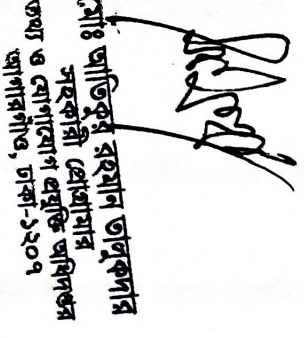 মোঃ আতিকুর রহমান তালুকদার
সহকারী প্রোগ্রামার
তথ্য ও যোগাযোগ প্রযুক্তি অধিদপ্তর
আগারগাঁও, ঢাকা-১২০৭